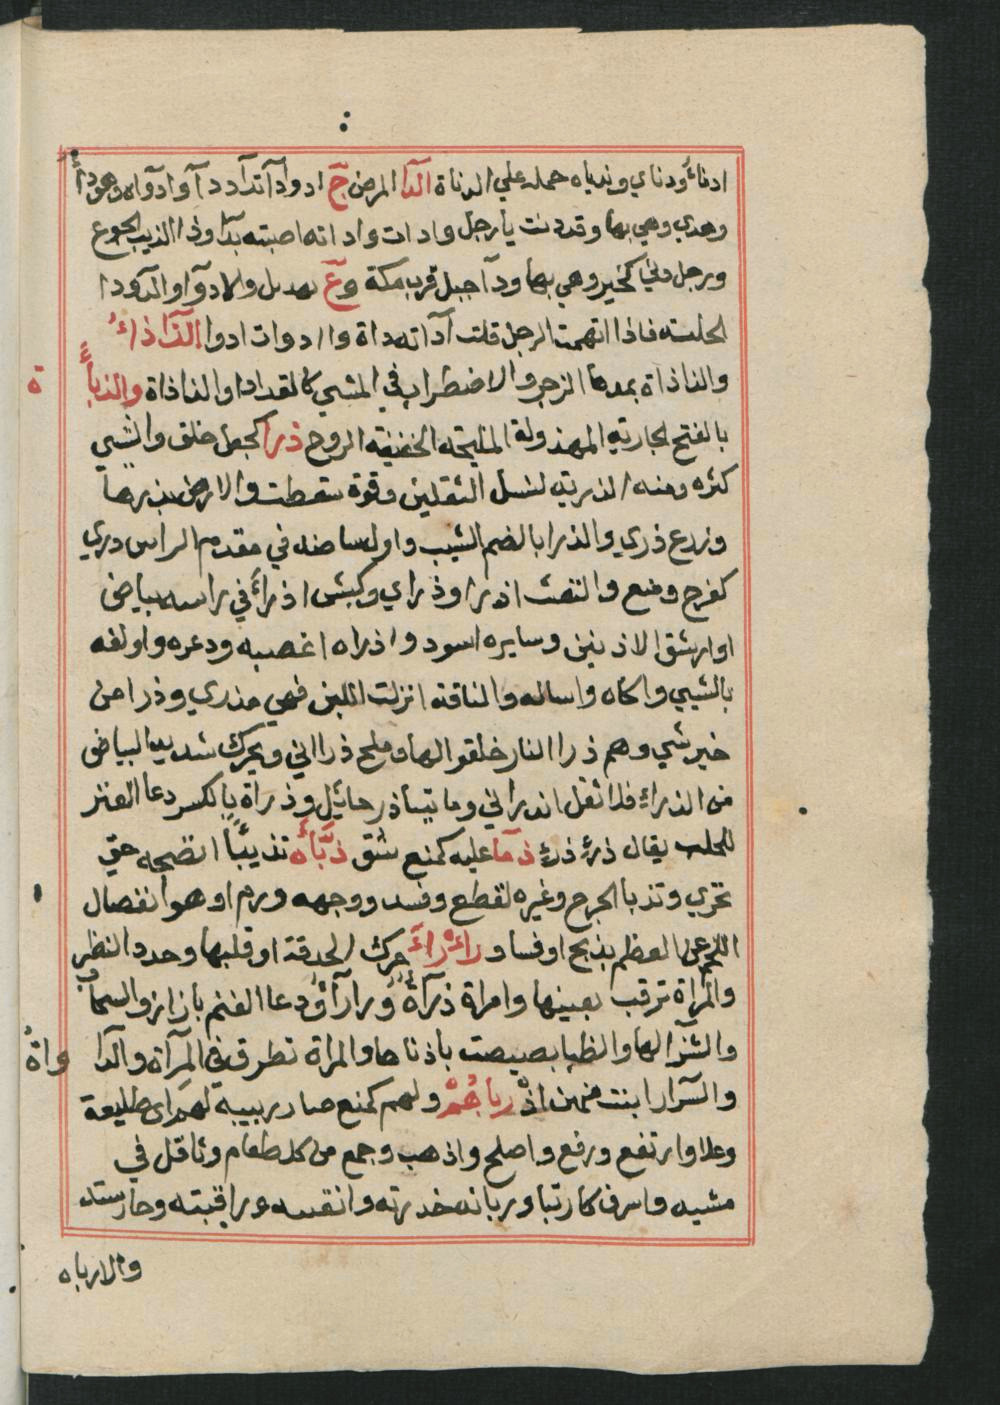 ادناءٌ ودناي وندباه حمله علي الدناة الدآا المرض جّ ادوادآ تداد دآ وادوآاه وهو دأٌ
وهدي وهي بها وقددنت يارجل وادات واداته اصبته بدآا وذا الذيب الجوع
ورجل دئيا كخير وهي بها ودآ جبل قرب مكة وعّ والادوآ والدآودا
فاذا اتهمت الرجل قلت ادآاته داة وادوات ادوا الذآا ذاءُ
والذاذاة بمدها الزجر والاضطراب في المشي كالقدادا والذاذاة والذبأةُ
بالفتح الجارية المهذولة المليحة الخفيفة الروح ذرا كجعل خلق والشي
كثره ومنه الذرية لنسل الثقلين وقوة سقطت والارض بذرها
وزرع ذري والذرا بالضم الشيب واول بياضه في مقدم الراس دري
كفرح ومنع والنعت اذرا وذراي وكبش اذراءُ في راسه بياض
اوارشق الاذنين وسايره اسود واذراه اغضبه ودعره واولعه
بالشيي والجاه واساله والناقة انزلت اللبن فهي مذري وذرا من
خير شي وهم ذرا النار خلقوا لها وملح ذرااني ويحرك شديد البياض
من الذراء فلا تقل اندراني وما بيننا ذر حايل وذراة بالكسر دعا العنز
للحلب يقال ذرءْ ذرءْ ذمآ عليه كمنع شق ذبّأه تذييبأ انضجه حتي
تحري وتذبا الجرح وغيره تقطع وفسد ووجهه ورم او هو انفصال
اللحم عن العظم بذبح اوفساد راءْ راءَ حرك الحدقة اوقلبها وحدد النظر
والمرأة ترقب بعينها وامراة ذرآةٌ ورارآوٌ ودعا الغنم بازاز والسحاب
والشرآ لها والظبا بصبصت باذنابها والمراة نظرت في المرآة والدآا واةُ
والسّرارا بنت منهن اذّ رباهُمْ ولهم كمنع صار ربيبة لهم اي طليعة
وعلا وارتفع ورفع واصلح واذهب وجمع من كل طعام وثاقل في
مشيه واسرف كارتبا وربانه خدرته وانقسه وراقبته وحارسته
والارباه